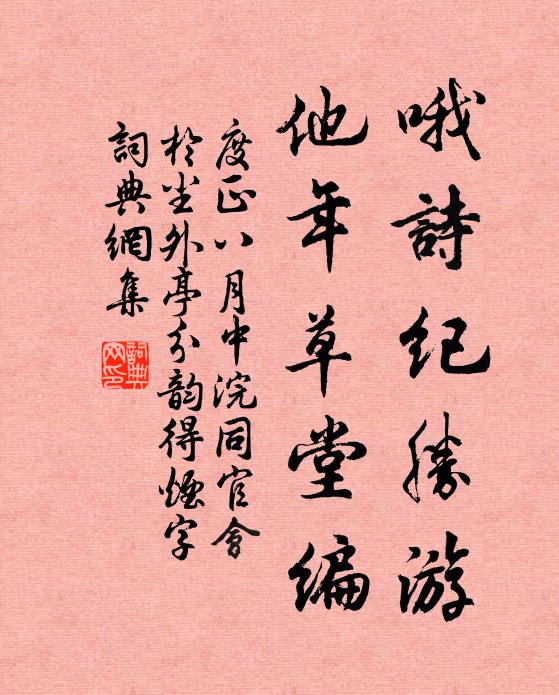 哦詩紀勝游
他年草堂編
度正八月中浣同官會
於塵外亭分韵得煙字
詞典網集
詞典網印